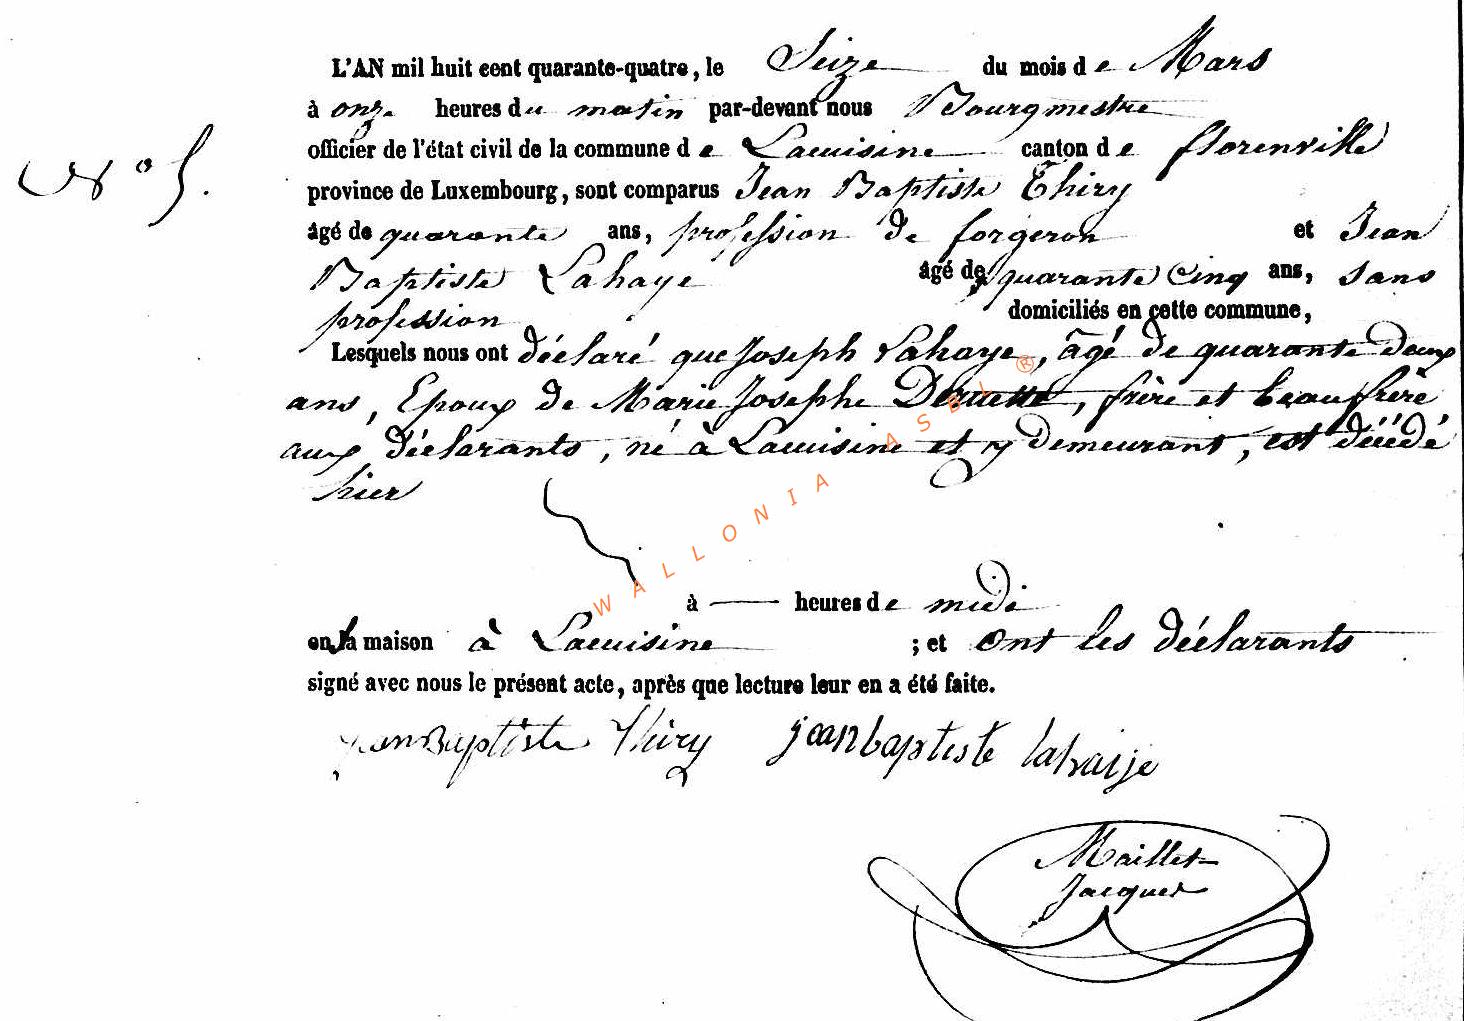 L'AN mil huit cent quarante-quatre, le Seize du mois de Mars
à onze heures du matin par-devant nous Bourgmestre
officier de l'état civil de la commune de Lacuisine canton de florenville
N° 5.
province de Luxembourg, sont comparus Jean Baptiste Thiry
âgé de quarante ans, profession de forgeron et Jean
Baptiste Lahaye âgé de quarante Cinq ans, sans
profession domiciliés en cette commune,
Lesquels nous ont déclaré que Joseph Lahaye, âgé de quarante deux
ans, Epoux de Marie Josephe, frère et beaufrère
aux déclarants, né à Lacuisine et y demeurant, est décédé
hier
à — heures de midi
en la maison à Lacuisine ; et ont les déclarants
signé avec nous le présent acte, après que lecture leur en a été faite.
jean Baptiste Thiry jean baptiste lahaije
Maillet
Jacquet
WALLONIA ASBL ®